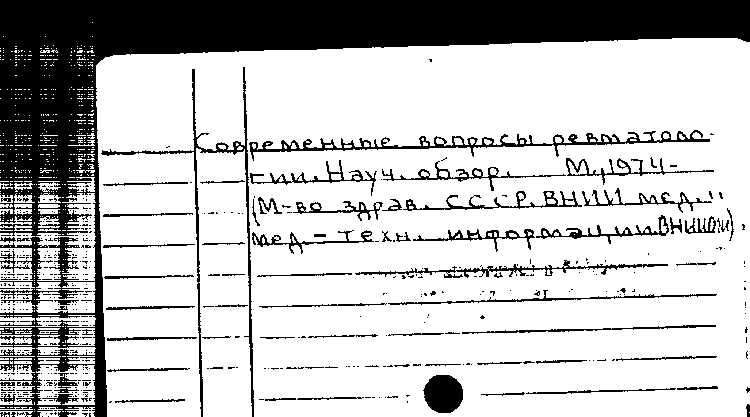 Современные вопросы ревматоло-
гии. Науч. обзор. М., 1974-
(М-во здрав. СССР. ВНИИ мед. и
мед.-техн. информации ВНИИМИ).